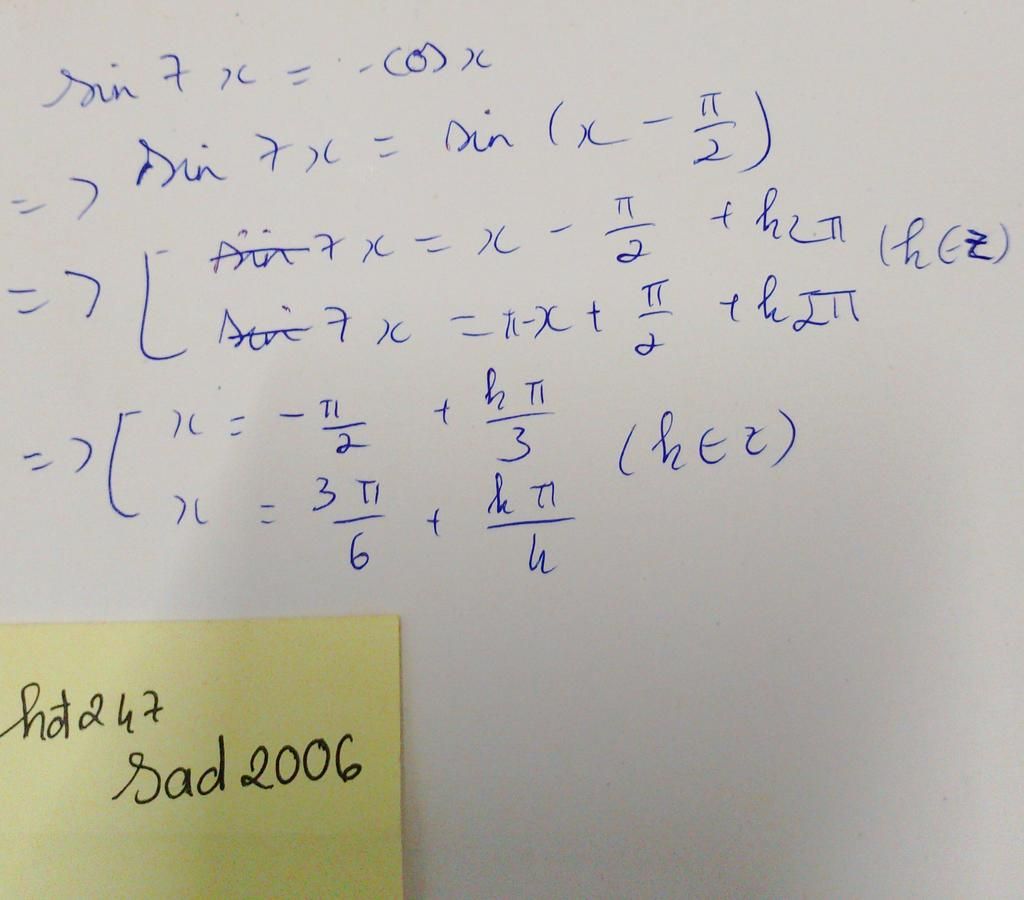 sin 7x = -cosx
=> sin 7x = sin (x - π/2)
=> [ sin 7x = x - π/2 + k2π (k∈Z)
sin 7x = π-x + π/2 + k2π
=> [ x = -π/2 + kπ/3 (k∈Z)
x = 3π/6 + kπ/4
hđ247
sad2006